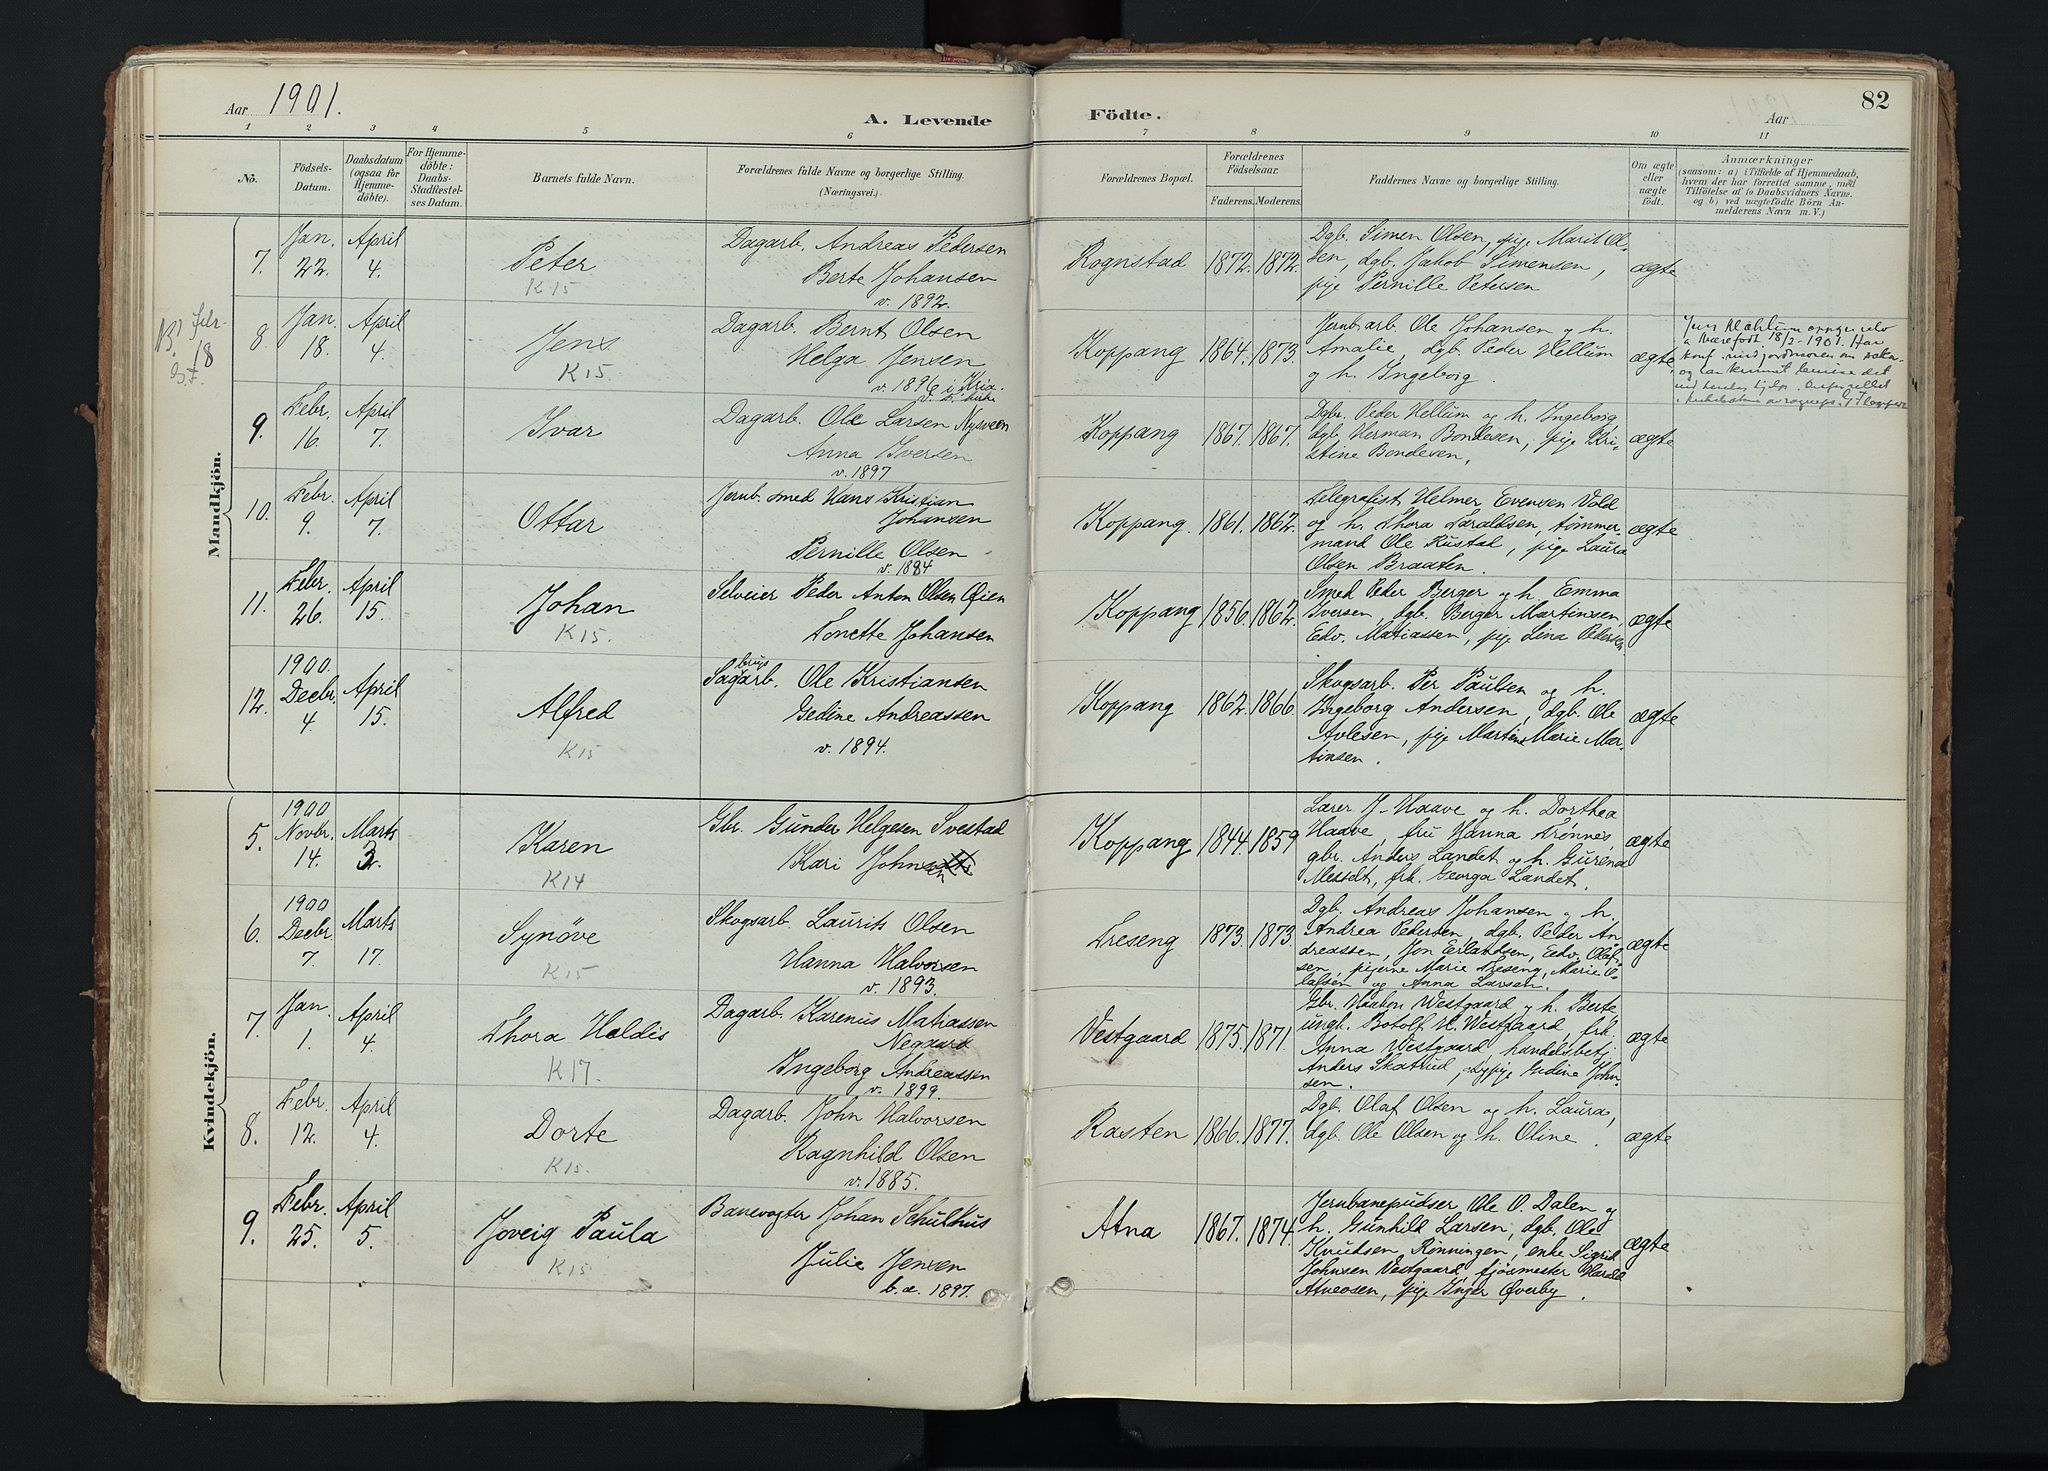 Aar 1901.
A. Levende
Födte.
Aar
82
1 2 3 4 5 6 7 8 9 10 11
No.
Födsels-
Datum.
Daabsdatum
(ogsaa for
Hjemme-
döbte).
For Hjemme-
döbte:
Daabs-
Stadfæstel-
ses Datum.
Barnets fulde Navn.
Forældrenes fulde Navne og borgerlige Stilling.
(Næringsvei.)
Forældrenes Bopæl.
Forældrenes
Födselsaar.
Faderens. Moderens.
Faddernes Navne og borgerlige Stilling.
Om ægte
eller
uægte
født.
Anmærkninger
saasom: a) i Tilfælde af Hjemmedaab,
hvem der har forrettet samme, med
Tilföielse af to Daabsvidners Navne.
og b) ved uægtefödte Börn An-
melderens Navn m. V.)
Mandkjön.
7.
Jan.
22.
April
4.
Peter
K15
Dagarb. Andreas Pedersen
Berte Johansen
v. 1892.
Rognstad
1872. 1872.
Dgb. Simen Olsen, pige Marit Ol-
sen, dgb. Jakob Simensen,
pige Pernille Petersen
ægte
Febr.
18
8.
Jan.
18.
April
4.
Jens
K15.
Dagarb. Bernt Olsen
Helga Jensen
v. 1896 i Kria.
Koppang
1864. 1873.
Jernb.arb. Ole Johansen og h.
Amalie, dgb. Peder Hellum
og h. Ingeborg.
ægte
9.
Febr.
16.
April
7.
Ivar
Dagarb. Ole Larsen Nysveen
Anna Iversen
v. 1897
Koppang
1867. 1867.
Dgbr. Peder Hellum og h. Ingeborg,
dgb. Herman Bondesen, pige Kri-
stine Bondesen,
ægte
10.
Febr.
9.
April
7.
Ottar
Jernb. smed Hans Kristian
Johansen
Pernille Olsen
v. 1884
Koppang
1861. 1862.
Telegrafist Helmer Evensen Vold
og h. Thora Taraldsen, tømmer-
mand Ole Rustad, pige Laura
Olsen Braaten.
ægte
11.
Febr.
26.
April
15.
Johan
K15.
Selveier Peder Anton Olsen Øien
Tonette Johansen
Koppang
1856. 1862.
Smed Peder Berger og h. Emma
Iversen, dgb. Berger Martinsen,
Edv. Matiassen, pige Lina Pedersen.
ægte
12.
1900.
Decbr.
4.
April
15.
Alfred
K15
Sagbrugsarb. Ole Kristiansen
Gedine Andreassen
v. 1894.
Koppang
1862. 1866.
Skogsarb. Per Paulsen og h.
Ingeborg Andersen, dgb. Ole
Avlesen, pige Martine Marie Mar-
tinsen.
ægte
Kvindekjön.
5.
1900
Novbr.
14.
Marts
3.
Karen
K14
Gbr. Gunder Helgesen Svestad
Kari Johnsen
Koppang
1844. 1859
Lærer J. Haave og h. Dorthea
Haave, fru Hanna Trønnes,
gbr. Anders Landet og h. Gurena
Messelt, frk. Georga Landet.
ægte
6.
1900
Decbr.
7.
Marts
17.
Synøve
K15
Skogsarb. Laurits Olsen
Hanna Halvorsen
v. 1893.
Treseng
1873. 1873.
Dgb. Andreas Johansen og h.
Andrea Pedersen, dgb. Peder An-
dreassen, Jon Erlandsen, Edv. Olaf-
sen, pigerne Marie Treseng, Marie O-
lafsen og Anna Larsen.
ægte
7.
Jan.
1.
April
4.
Thora Haldis
K17.
Dagarb. Karenus Matiassen
Negaard
Ingeborg Andreassen
v. 1899.
Vestgaard
1875. 1871.
Gbr. Haakon Westgaard og h. Berte
ungk. Botolf H. Westgaard, frk.
Anna Westgaard, handelsbetj.
Anders Skatrud, pige Gedine John-
sen.
ægte
8.
Febr.
12.
April
4.
Dorte
K15.
Dagarb. John Halvorsen
Ragnhild Olsen
v. 1885.
Rasten
1866. 1877.
Dgb. Olaf Olsen og h. Laura,
dgb. Ole Olsen og h. Oline.
ægte
9.
Febr.
25.
April
5.
Joveig Paula
K15
Banevogter Johan Schulhus
Julie Jensen
b.æ. 1897.
Atna
1867. 1874.
Jernbanepudser Ole O. Dalen og
h. Gunhild Larsen, dgb. Ole
Knudsen Rönningen, enke Sigrid
Johnsen Vestgaard, fjøsmester
pige Inger Øverby.
ægte